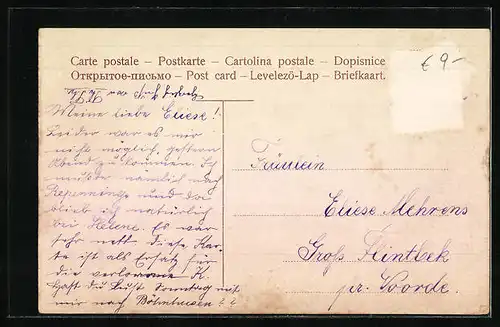 Carte postale – Postkarte – Cartolina postale – Dopisnice
Открытое-письмо – Post card – Levelező-Lap – Briefkaart.
€ 9-
Meine liebe Eliese!
Leider war es mir
nicht möglich, gestern
Abend zu kommen. Ich
mußte nämlich nach
Repenning und da
blieb ich natürlich
bei Helene. Es war
sehr nett diese Kar-
te ist als Ersatz für
die verlorene K.
Hast du Lust Sonntag mit
mir nach Böhnhusen??
Fräulein
Eliese Mehrens
Groß Flintbek
pr. Voorde.